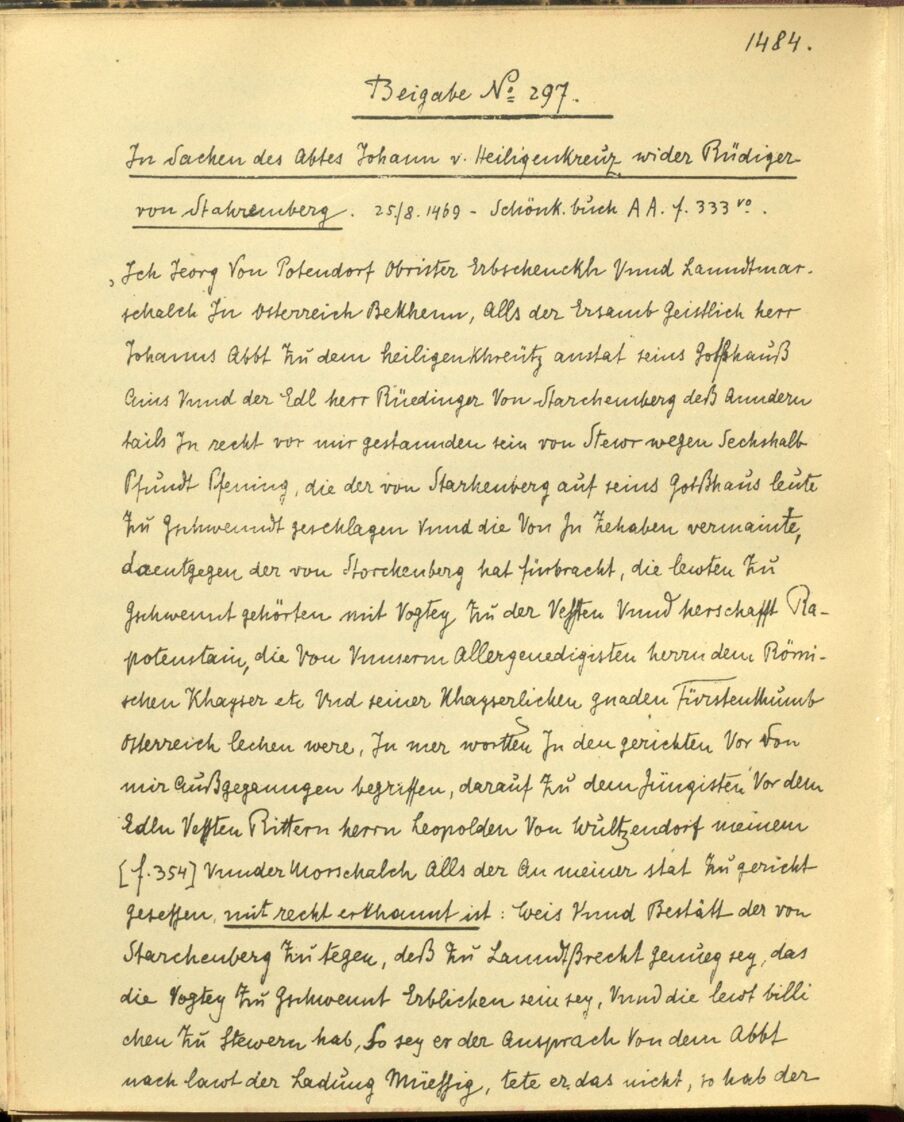 1484.
Beigabe No 297.
In Sachen des Abtes Johann v. Heiligenkreuz wider Rüdiger
von Stahremberg. 25/8. 1469 - Schönk. buch A A. f. 333 vo.
„Ich Jeorg Von Potendorf Obrister Erbschenckh Vnnd Lanndtmar-
schalch In Osterreich Bekhenn, Alls der Ersamb Geistlich herr
Johanns Abbt Zu dem heiligenkhreütz anstat seins Gotßhauß
Ains Vnnd der Edl herr Rüedinger Von Starchemberg deß Anndern
tails In recht vor mir gestannden sein von Stewr wegen Sechshalb
Pfundt Pfening, die der von Starhenberg auf seins Gotßhaus leute
Zu Gschwenndt geschlagen Vnnd die Von In Zehaben vermainte,
daentgegen der von Storchenberg hat fürbracht, die lewten Zu
Gschwennt gehörten mit Vogtey Zu der Vessten Vnnd herschafft Ra-
potenstain, die Von Vnnserm Allergenedigisten herrn dem Römi-
schen Khayser etc Vnd seiner Khayserlichen gnaden Fürstenthumb
Osterreich lechen were, In mer wortten In den gerichten Vor Von
mir Außgeganngen begriffen, darauf Zu dem Jüngisten Vor dem
Edln Vessten Rittern herrn Leopolden Von Wultzendorf meinem
[f. 354] Vnnder Marschalch Alls der An meiner stat Zu gericht
gesessen, mit recht erkhannt ist: Weis Vnnd Bestätt der von
Starchenberg Zu tegen, deß Zu Lanndtßrecht genueg sey, das
die Vogtey Zu Gschwennt Erblichen sein sey, Vnnd die lewt billi
chen Zu Stewern hab, So sey er der Ansprach Von dem Abbt
nach lawt der Ladung Müessig, tete er das nicht, so hab der